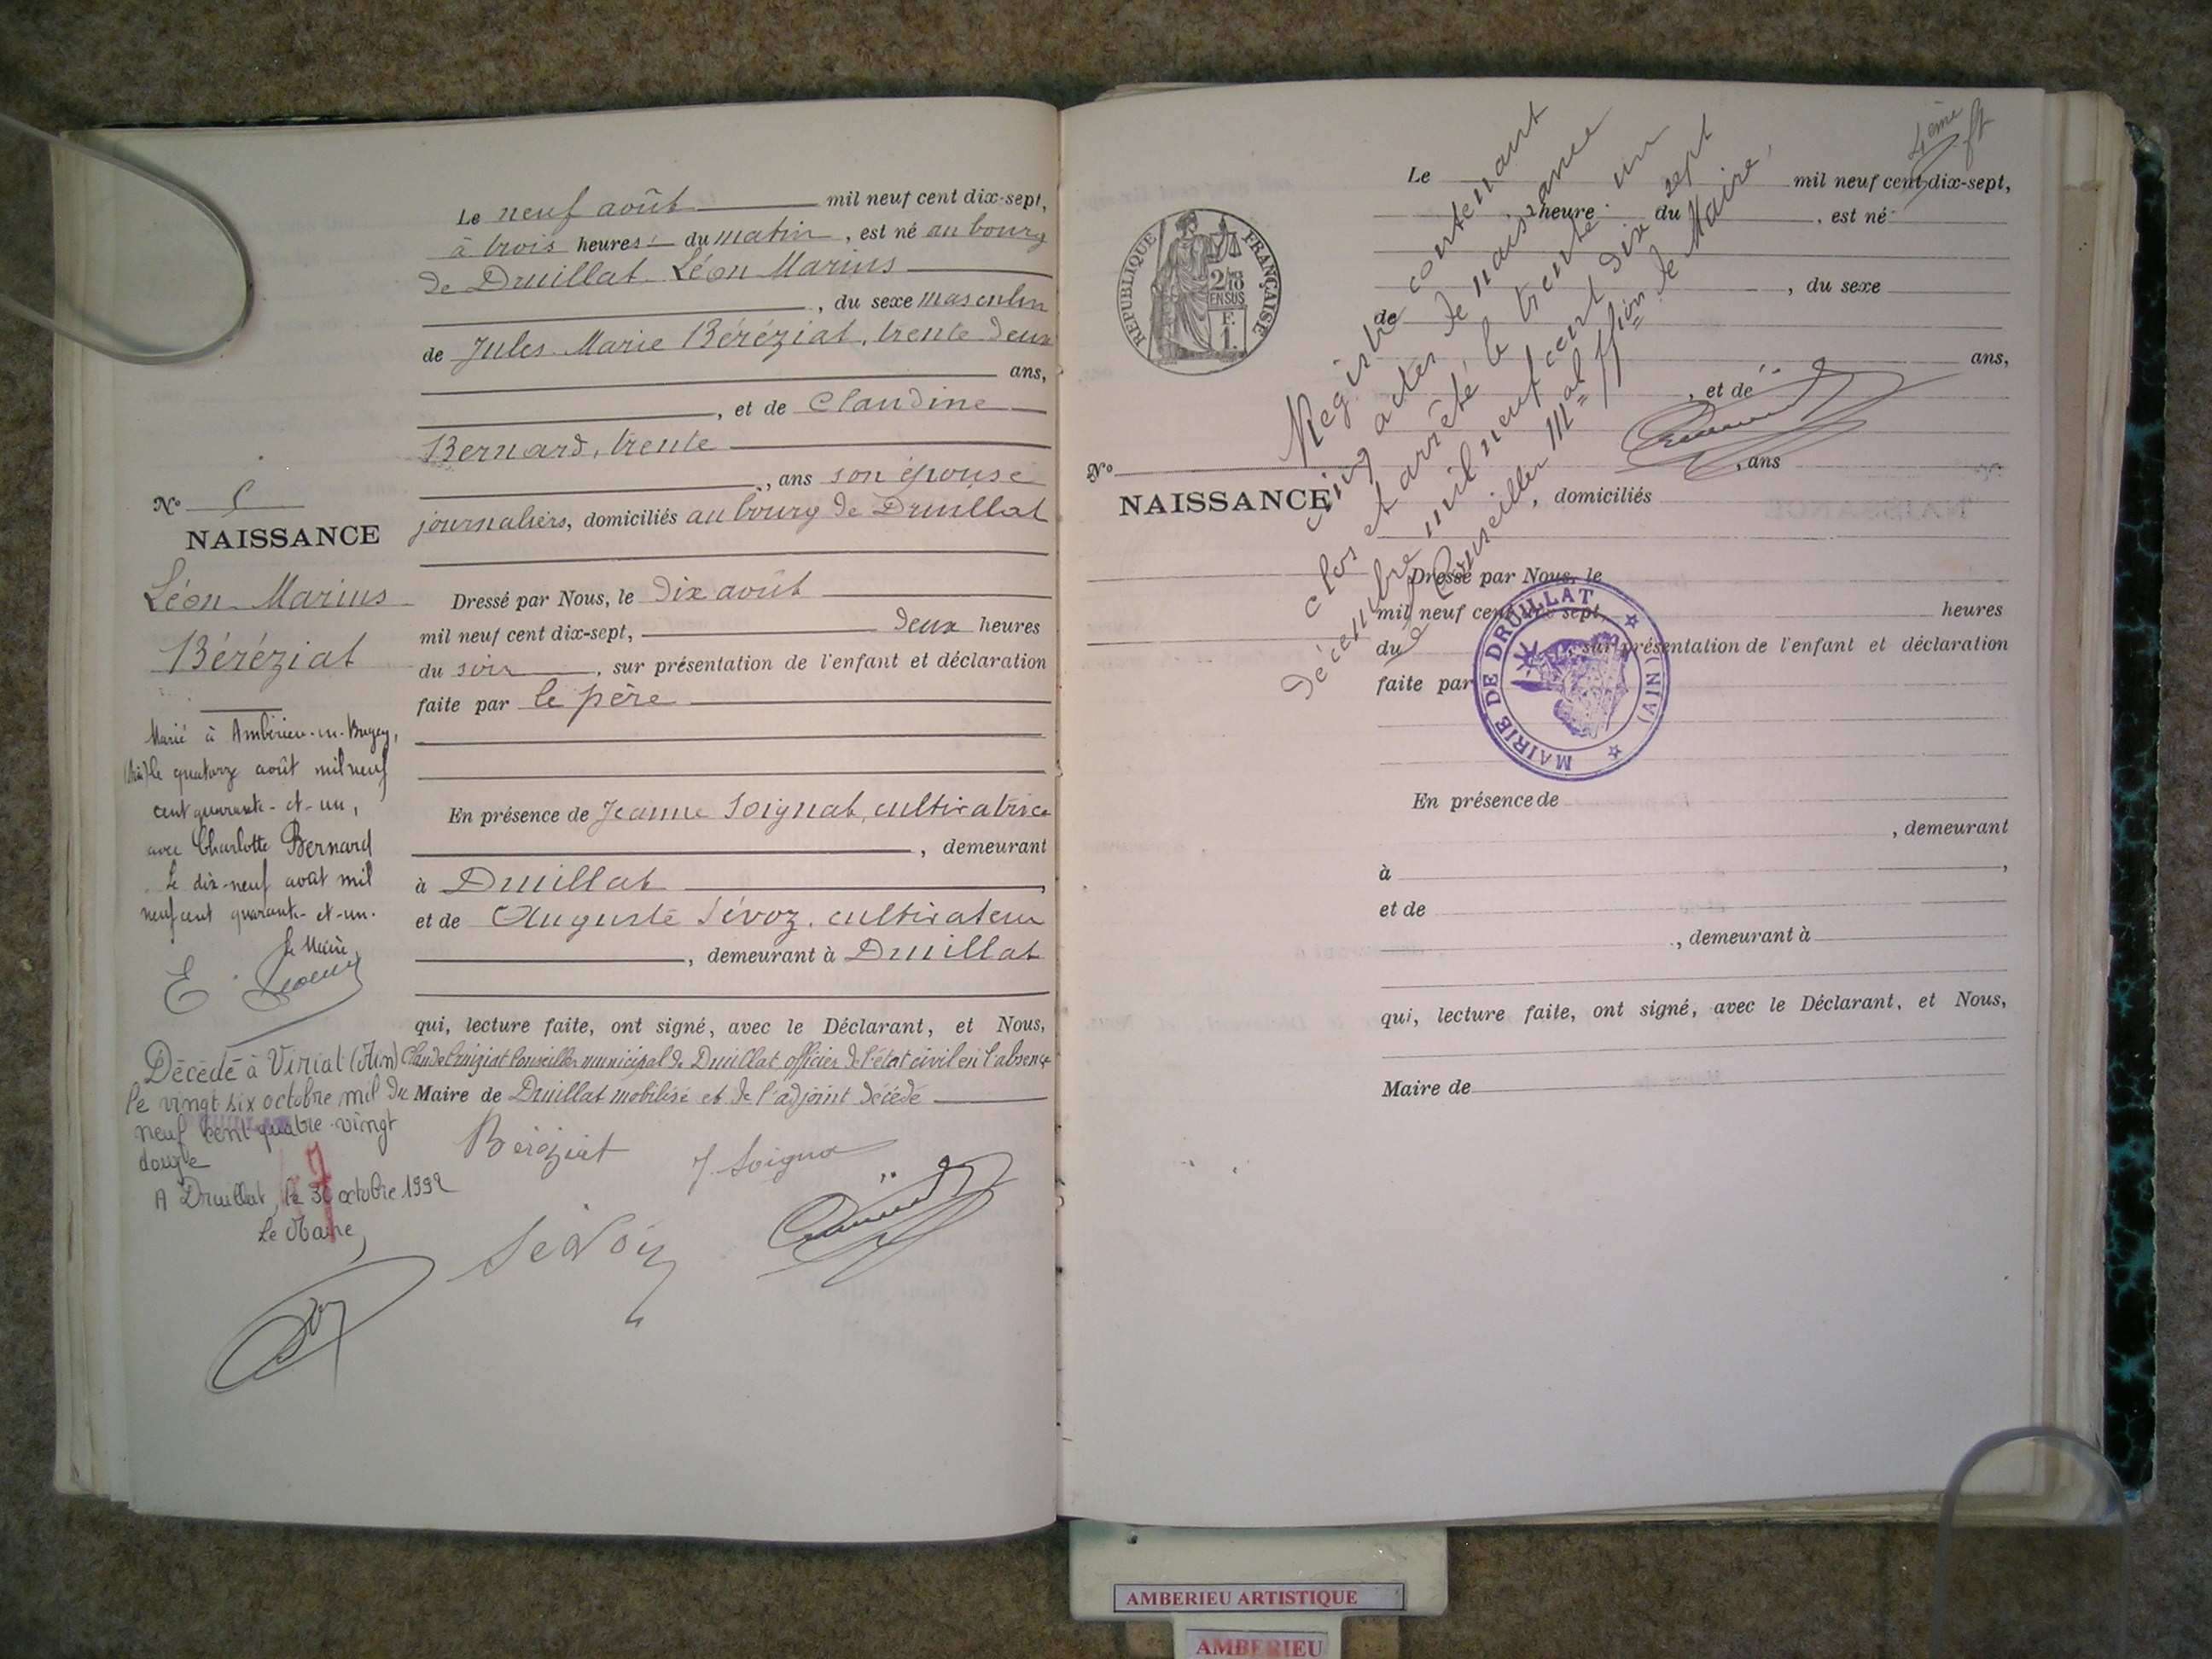 Le neuf août mil neuf cent dix-sept,
à trois heures du matin, est né au bourg
de Druillat Léon Marius
, du sexe masculin
de Jules Marie Béréziat, trente deux
ans,
, et de Claudine
Bernard, trente
, ans son épouse
journaliers, domiciliés au bourg de Druillat
Dressé par Nous, le dix août
mil neuf cent dix-sept, deux heures
du soir, sur présentation de l'enfant et déclaration
faite par le père
En présence de Jeanne Soignat, cultivatrice
, demeurant
à Druillat,
et de Auguste Sévoz, cultivateur
, demeurant à Druillat
qui, lecture faite, ont signé, avec le Déclarant, et Nous,
Claude Conseiller municipal de Druillat officier de l'état civil en l'absence
du Maire de Druillat mobilisé et de l'adjoint décédé
Béréziat J. Soigna
Sévoz
Nº 5
NAISSANCE
Léon Marius
Béréziat
Marié à Ambérieu-en-Bugey,
(Ain) le quatorze août mil neuf
cent quarante-et-un,
avec Charlotte Bernard
Le dix-neuf août mil
neuf cent quarante-et-un.
Le Maire
E.
Décédé à Viriat (Ain)
le vingt six octobre mil
neuf cent quatre-vingt
douze
A Druillat, le 30 octobre 1992
Le Maire,
4ème ft
RÉPUBLIQUE FRANÇAISE
2/10
EN SUS
F.
1.
Registre contenant
cinq actes de naissance
clos et arrêté le trente un
décembre mil neuf cent dix sept
Le Conseiller Mal ffion de Maire,
Le mil neuf cent dix-sept,
heure du , est né
, du sexe
de
ans,
, et de
Nº
, ans
NAISSANCE
, domiciliés
Dressé par Nous, le
mil neuf cent dix-sept, heures
du , sur présentation de l'enfant et déclaration
faite par
MAIRIE DE DRUILLAT (AIN)
En présence de
, demeurant
à ,
et de
, demeurant à
qui, lecture faite, ont signé, avec le Déclarant, et Nous,
Maire de
AMBERIEU ARTISTIQUE
AMBERIEU